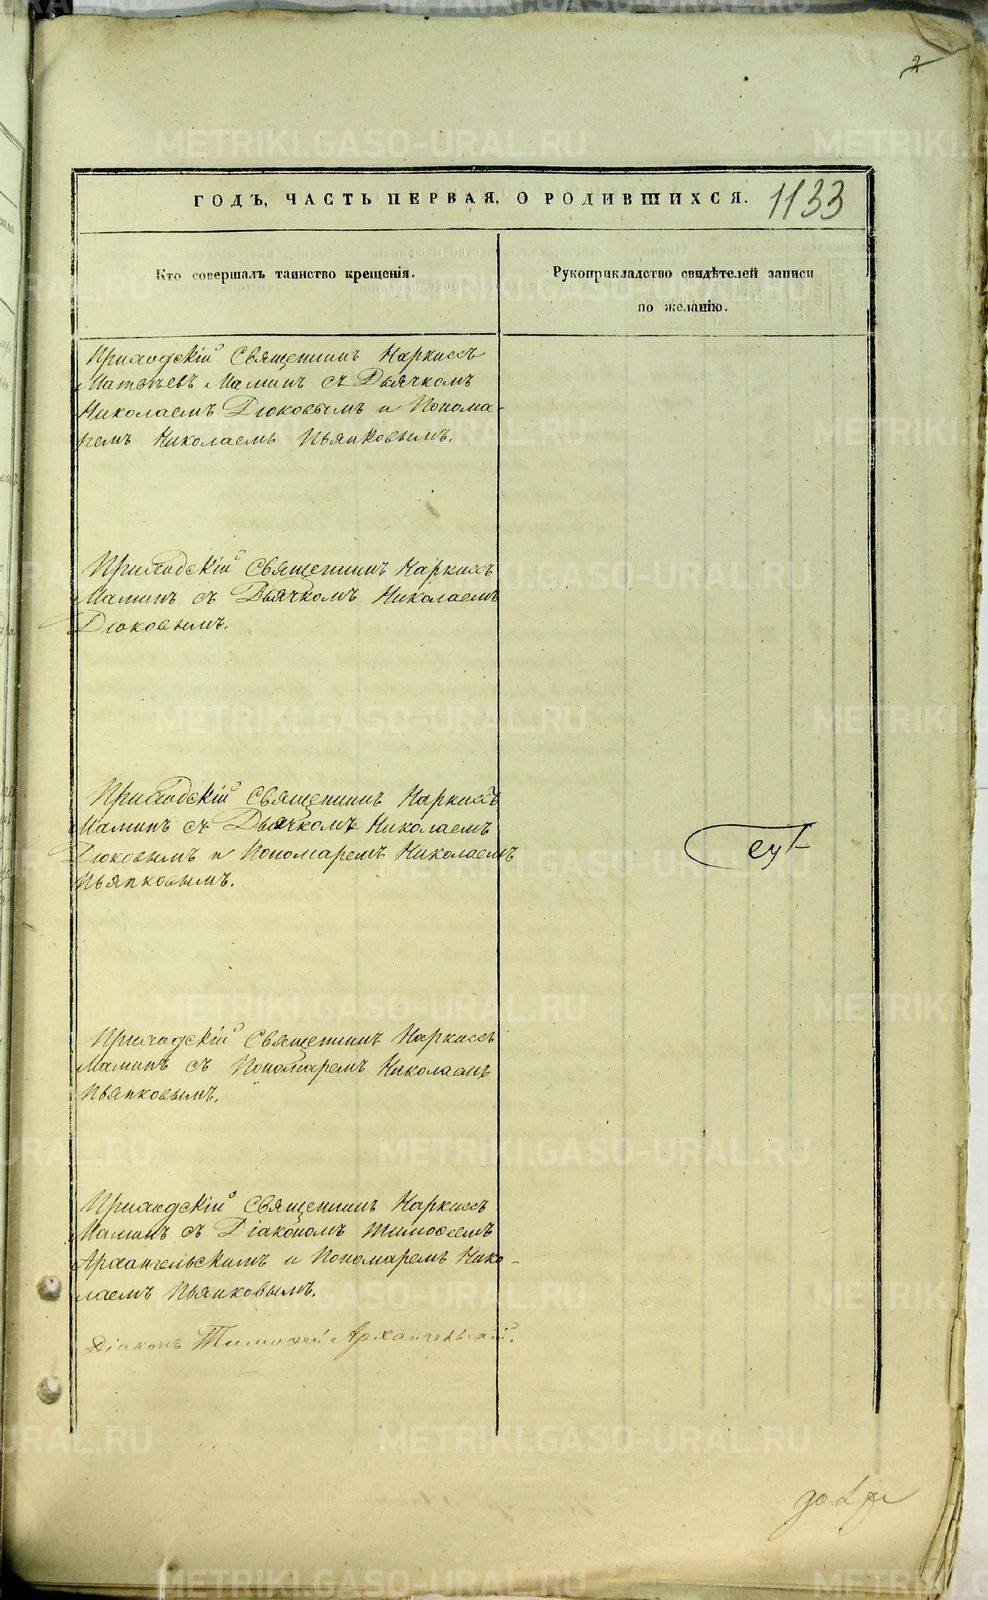 2
ГОДЪ, ЧАСТЬ ПЕРВАЯ, О РОДИВШИХСЯ.
1133
Кто совершалъ таинство крещенія.
Рукоприкладство свидѣтелей записи
по желанію.
Приходскій Священникъ Наркиссъ
Матвѣевъ Маминъ съ Дьячкомъ
Николаемъ Дюковымъ и Понома-
ремъ Николаемъ Пьянковымъ.
Приходскій Священникъ Наркиссъ
Маминъ съ Дьячкомъ Николаемъ
Дюковымъ.
Приходскій Священникъ Наркиссъ
Маминъ съ Дьячкомъ Николаемъ
Дюковымъ и Пономаремъ Николаемъ
Пьянковымъ.
Приходскій Священникъ Наркиссъ
Маминъ съ Пономаремъ Николаемъ
Пьянковымъ.
Приходскій Священникъ Наркиссъ
Маминъ съ Діакономъ Тимофеемъ
Архангельскимъ и Пономаремъ Нико-
лаемъ Пьянковымъ.
Діаконъ Тимофей Архангельскій.
METRIKI.GASO-URAL.RU